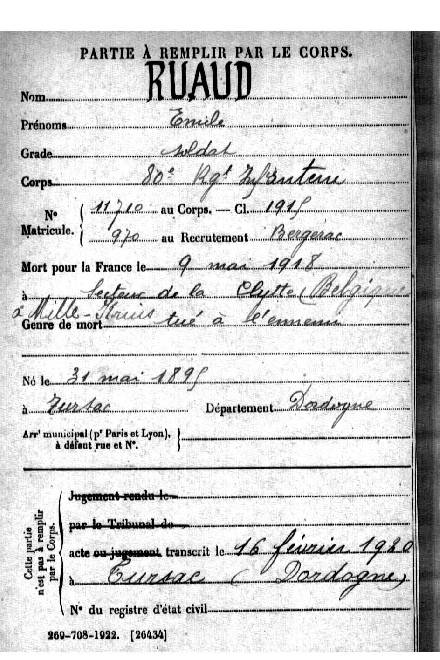 PARTIE À REMPLIR PAR LE CORPS.
Nom RUAUD
Prénoms Emile
Grade soldat
Corps 80e Rgt Infanterie
No Matricule. { 11710 au Corps. — Cl. 1915
970 au Recrutement Bergerac
Mort pour la France le 9 mai 1918
à secteur de la Clytte (Belgique
à Mille-Kruis
Genre de mort tué à l'ennemi
Né le 31 mai 1895
à Tursac Département Dordogne
Arrt municipal (pr Paris et Lyon), à défaut rue et No. }
Cette partie n'est pas à remplir par le Corps.
Jugement rendu le
par le Tribunal de
acte ou jugement transcrit le 16 février 1920
à Tursac (Dordogne)
No du registre d'état civil
269-708-1922. [26434]